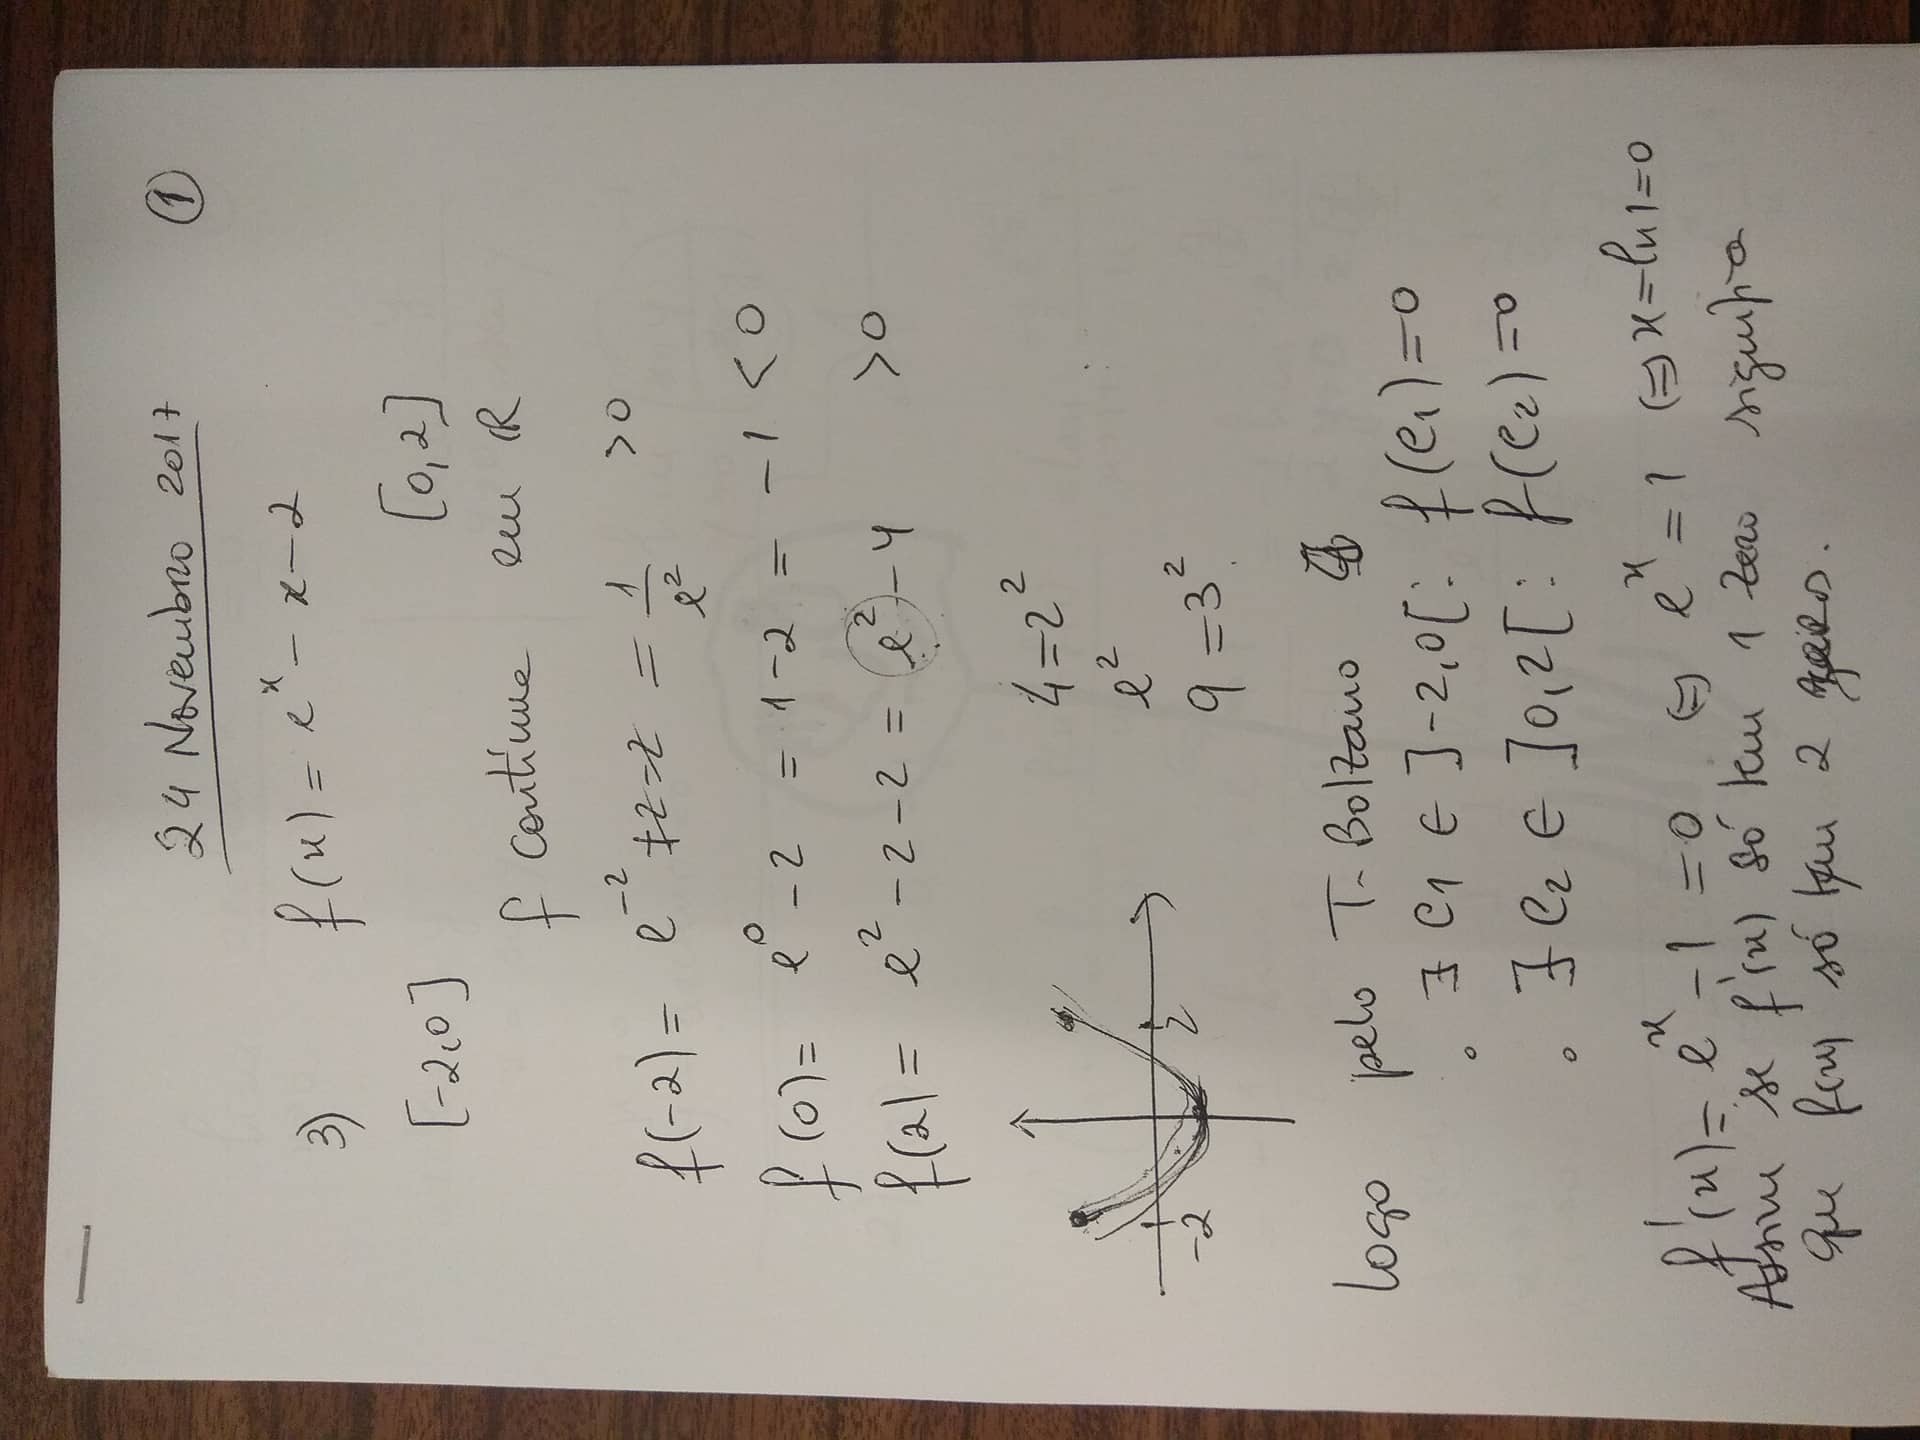 24 Novembro 2017 ①
3) f(x) = e^x - x - 2
[-2,0] [0,2]
f contínua em ℝ
f(-2) = e^-2 +2-2 = 1/e^2 >0
f(0) = e^0 - 2 = 1-2 = -1 <0
f(2) = e^2 - 2 - 2 = e^2 - 4 >0
4=2^2
e^2
9=3^2
-2 2
Logo pelo T. Bolzano
• ∃ c1 ∈ ]-2,0[ : f(c1)=0
• ∃ c2 ∈ ]0,2[ : f(c2)=0
f'(x) = e^x - 1 = 0 ⇔ e^x = 1 ⇔ x = ln 1 = 0
Assim se f'(x) só tem 1 zero significa
que f(x) só tem 2 zeros.